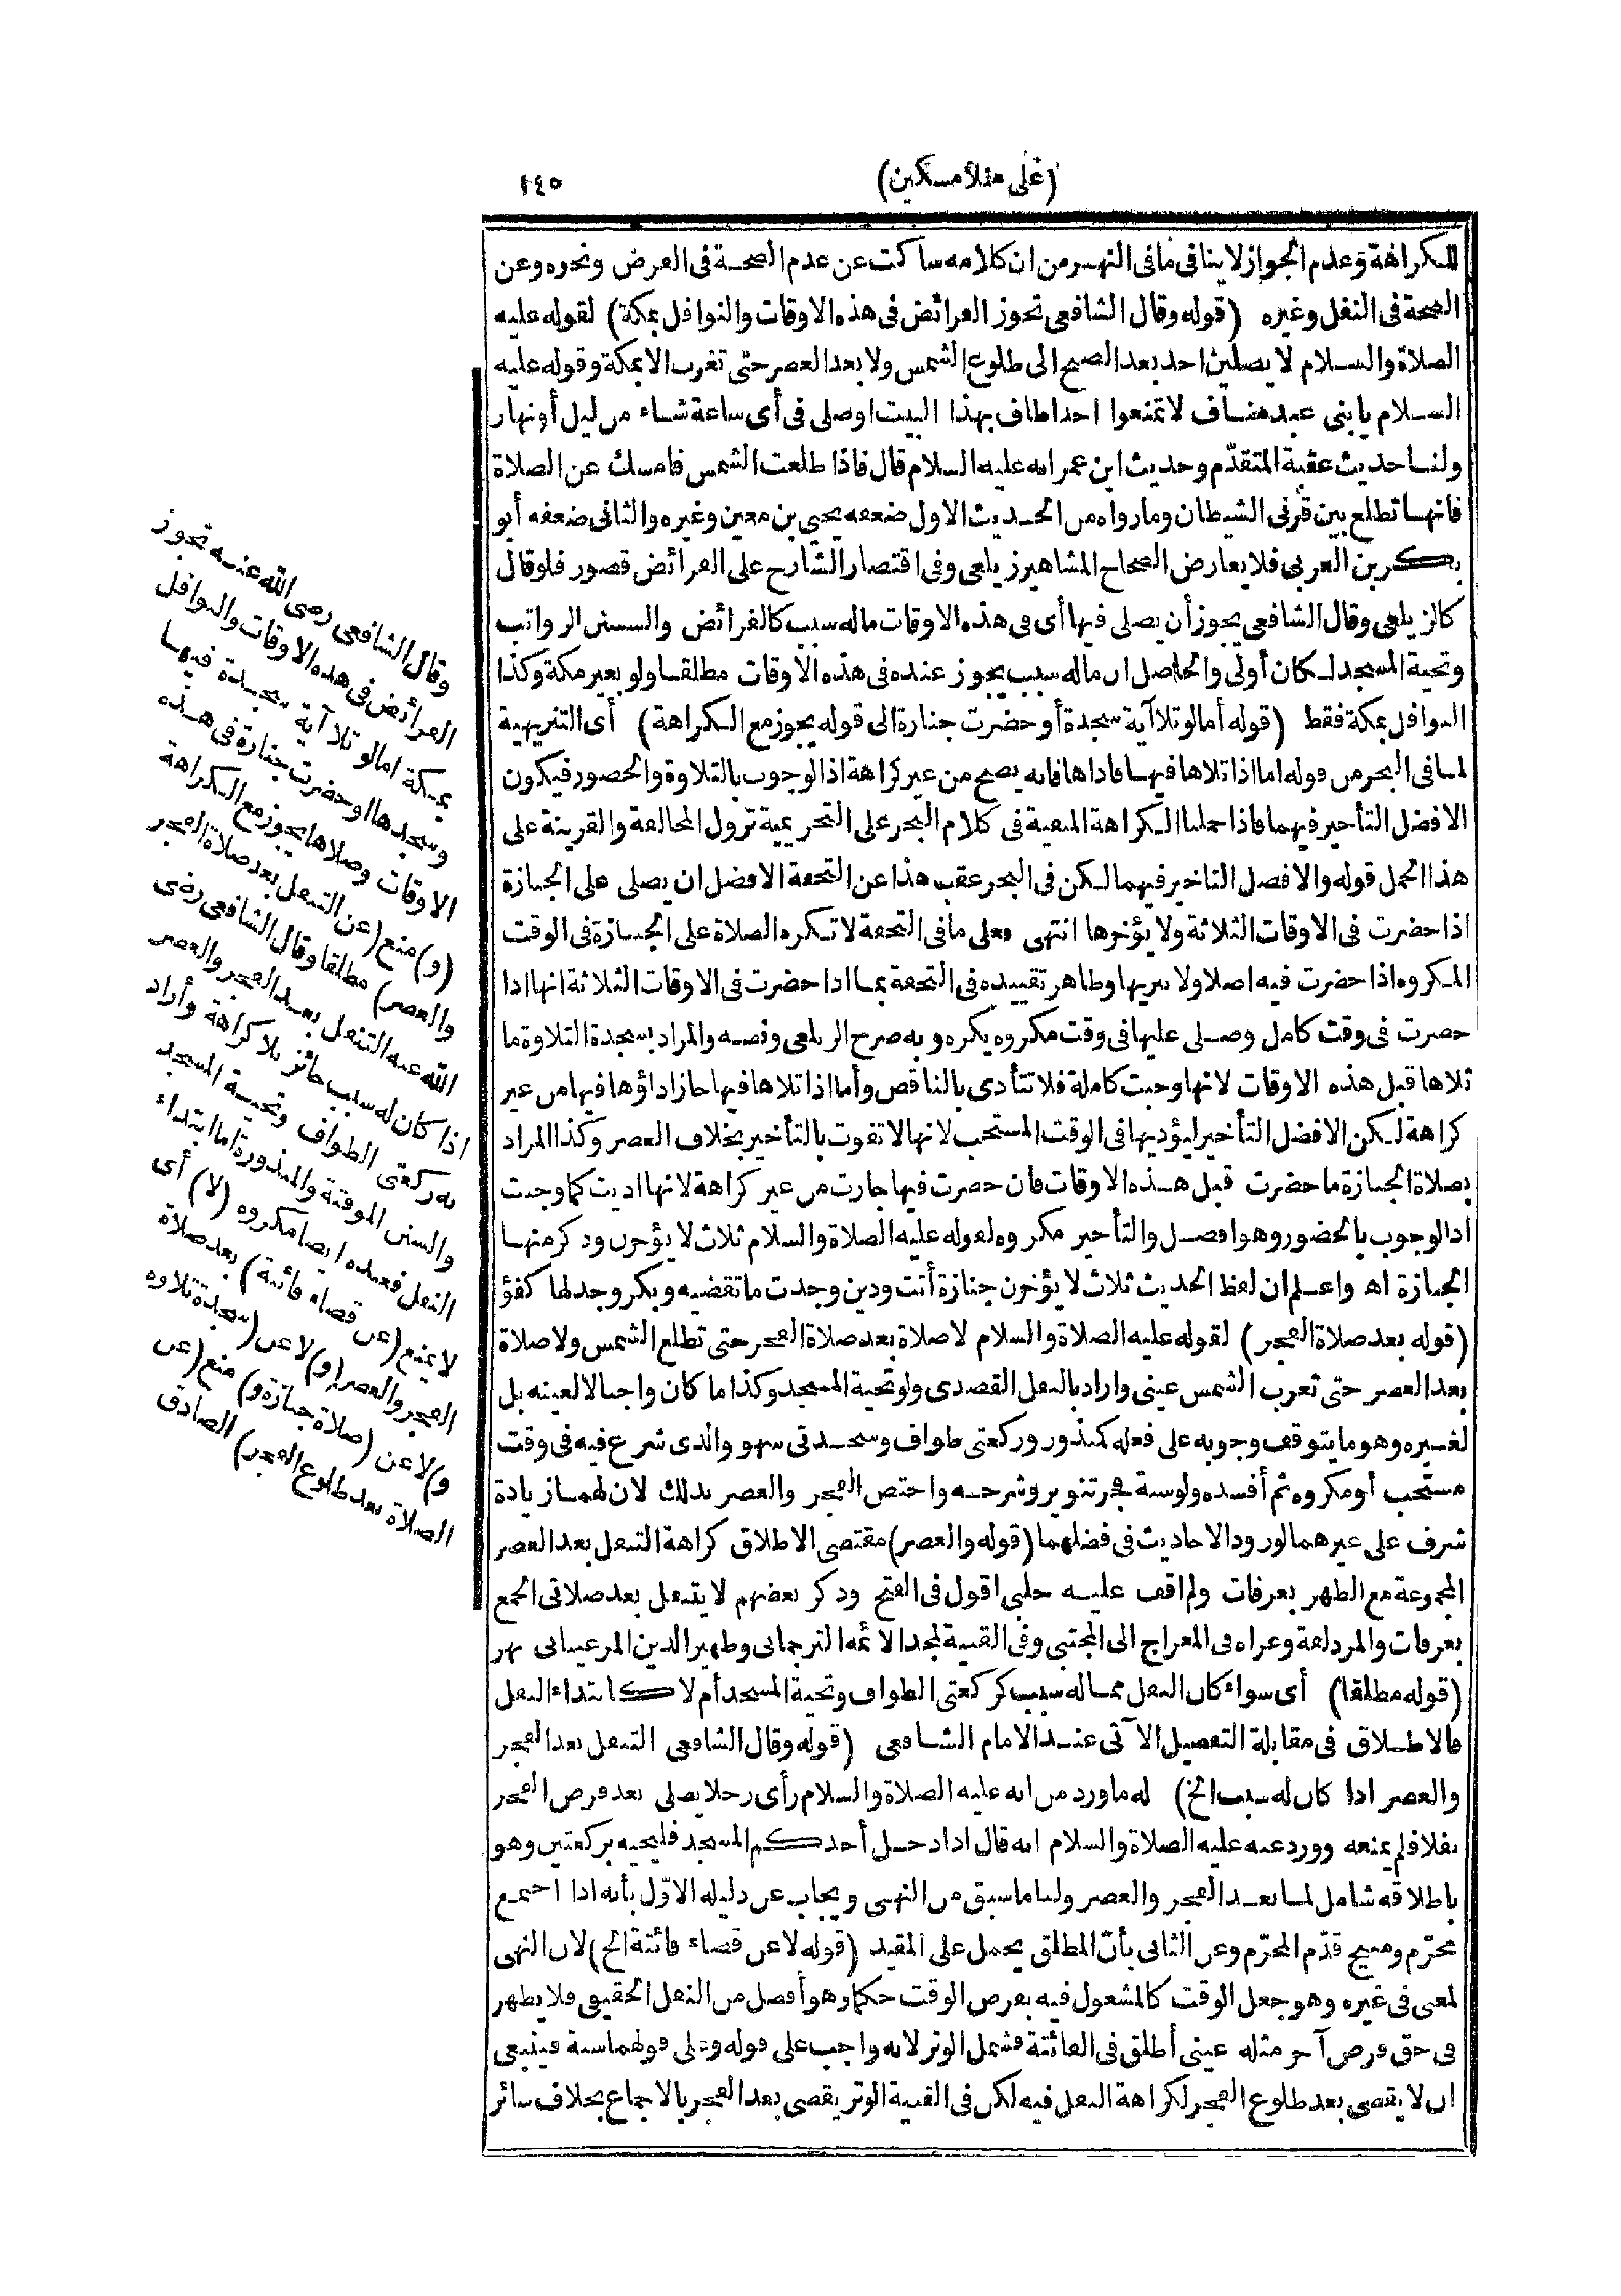 (على منلا مسكين)
١٤٥
للكراهة وعدم الجواز لا ينافى ما فى النهر من ان كلامه ساكت عن عدم الصحة فى الفرض ونحوه وعن
الصحة فى النفل وغيره (قوله وقال الشافعى تجوز الفرائض فى هذه الاوقات والنوافل بمكة) لقوله عليه
الصلاة والسلام لا يصلين احد بعد الصبح الى طلوع الشمس ولا بعد العصر حتى تغرب الا بمكة وقوله عليه
السلام يا بنى عبد مناف لا تمنعوا احدا طاف بهذا البيت او صلى فى أى ساعة شاء من ليل أو نهار
ولنا حديث عقبة المتقدّم وحديث ابن عمر انه عليه السلام قال فاذا طلعت الشمس فامسك عن الصلاة
فانها تطلع بين قرنى الشيطان وما رواه من الحديث الاول ضعفه يحيى بن معين وغيره والثانى ضعفه أبو
بكر بن العربى فلا يعارض الصحاح المشاهير زيلعى وفى اقتصار الشارح على الفرائض قصور فلو قال
كالزيلعى وقال الشافعى يجوز أن يصلى فيها أى فى هذه الاوقات ما له سبب كالفرائض والسنن الرواتب
وتحية المسجد لكان أولى والحاصل ان ما له سبب يجوز عنده فى هذه الأوقات مطلقا ولو بغير مكة وكذا
النوافل بمكة فقط (قوله أما لو تلا آية سجدة أو حضرت جنازة الى قوله يجوز مع الكراهة) أى التنزيهية
لما فى البحر من قوله اما اذا تلاها فيها فاداها فانه يصح من غير كراهة اذ الوجوب بالتلاوة والحضور فيكون
الافضل التأخير فيهما فاذا حملنا الكراهة المنفية فى كلام البحر على التحريمية تزول المخالفة والقرينة على
هذا الحمل قوله والافضل التاخير فيهما لكن فى البحر عقب هذا عن التحفة الافضل ان يصلى على الجنازة
اذا حضرت فى الاوقات الثلاثة ولا يؤخرها انتهى فعلى ما فى التحفة لا تكره الصلاة على الجنازة فى الوقت
المكروه اذا حضرت فيه اصلا ولا تنزيها وظاهر تقييده فى التحفة بما اذا حضرت فى الاوقات الثلاثة انها اذا
حضرت فى وقت كامل وصلى عليها فى وقت مكروه يكره وبه صرح الزيلعى ونصه والمراد بسجدة التلاوة ما
تلاها قبل هذه الاوقات لانها وجبت كاملة فلا تتأدى بالناقص وأما اذا تلاها فيها جاز اداؤها فيها من غير
كراهة لكن الافضل التأخير ليؤديها فى الوقت المستحب لانها لا تفوت بالتأخير بخلاف العصر وكذا المراد
بصلاة الجنازة ما حضرت قبل هذه الاوقات فان حضرت فيها جازت من غير كراهة لانها اديت كما وجبت
اذ الوجوب بالحضور وهو افضل والتأخير مكروه لقوله عليه الصلاة والسلام ثلاث لا يؤخرن وذكر منها
الجنازة اه واعلم ان لفظ الحديث ثلاث لا يؤخرن جنازة أتت ودين وجدت ما تقضيه وبكر وجد لها كفؤ
(قوله بعد صلاة الفجر) لقوله عليه الصلاة والسلام لا صلاة بعد صلاة الفجر حتى تطلع الشمس ولا صلاة
بعد العصر حتى تغرب الشمس عينى واراد بالنفل القصدى ولو تحية المسجد وكذا ما كان واجبا لا لعينه بل
لغيره وهو ما يتوقف وجوبه على فعله كمنذور وركعتى طواف وسجدتى سهو والذى شرع فيه فى وقت
مستحب أو مكروه ثم أفسده ولو سنة فجر تنوير وشرحه واختص الفجر والعصر بذلك لان لهما زيادة
شرف على غيرهما لورود الاحاديث فى فضلهما (قوله والعصر) مقتضى الاطلاق كراهة التنفل بعد العصر
المجموعة مع الظهر بعرفات ولم اقف عليه حلبى اقول فى الفتح وذكر بعضهم لا يتنفل بعد صلاتى الجمع
بعرفات والمزدلفة وعزاه فى المعراج الى المجتبى وفى القنية لمجد الائمه الترجمانى وظهير الدين المرغينانى نهر
(قوله مطلقا) أى سواء كان النفل مما له سبب كركعتى الطواف وتحية المسجد أم لا كابتداء النفل
فالاطلاق فى مقابلة التفصيل الآتى عند الامام الشافعى (قوله وقال الشافعى التنفل بعد الفجر
والعصر اذا كان له سبب الخ) له ما ورد من انه عليه الصلاة والسلام رأى رجلا يصلى بعد فرض الفجر
نفلا فلم يمنعه وورد عنه عليه الصلاة والسلام انه قال اذا دخل أحدكم المسجد فليحيه بركعتين وهو
باطلاقه شامل لما بعد الفجر والعصر ولنا ما سبق من النهى ويجاب عن دليله الاوّل بأنه اذا اجتمع
محرّم ومبيح قدّم المحرّم وعن الثانى بأنّ المطلق يحمل على المقيد (قوله لا عن قضاء فائتة الخ) لان النهى
لمعنى فى غيره وهو جعل الوقت كالمشغول فيه بفرض الوقت حكما وهو أفضل من النفل الحقيقى فلا يظهر
فى حق فرض آخر مثله عينى أطلق فى الفائتة فشمل الوتر لانه واجب على قوله وعلى قولهما سنة فينبغى
ان لا يقضى بعد طلوع الفجر لكراهة النفل فيه لكن فى القنية الوتر يقضى بعد الفجر بالاجماع بخلاف سائر
وقال الشافعى رضى الله عنه تجوز
الفرائض فى هذه الاوقات والنوافل
بمكة اما لو تلا آية سجدة فيها
وسجدها او حضرت جنازة فى هذه
الاوقات وصلاها يجوز مع الكراهة
(و) منع (عن التنفل بعد صلاة الفجر
والعصر) مطلقا وقال الشافعى رضى
الله عنه التنفل بعد الفجر والعصر
اذا كان له سبب جائز بلا كراهة وأراد
به ركعتى الطواف وتحية المسجد
والسنن الموقتة والمنذورة اما ابتداء
النفل فعنده ايضا مكروه (لا) أى
لا يمنع (عن قضاء فائتة) بعد صلاة
الفجر والعصر (و) لا عن (سجدة تلاوه
و) لا عن (صلاة جنازة و) منع (عن
الصلاة بعد طلوع الفجر) الصادق